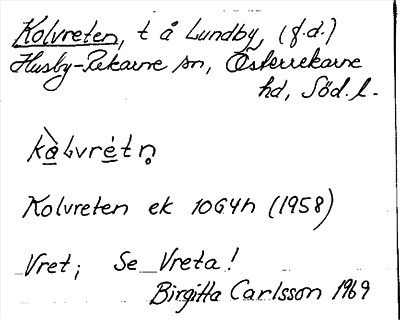 Kolvreten, t å Lundby, (f.d.)
Husby-Rekarne sn, Österrekarne
hd, Söd. l.
kàLvrétn̥
Kolvreten ek 10G4h (1958)
Vret; Se Vreta!
Birgitta Carlsson 1969